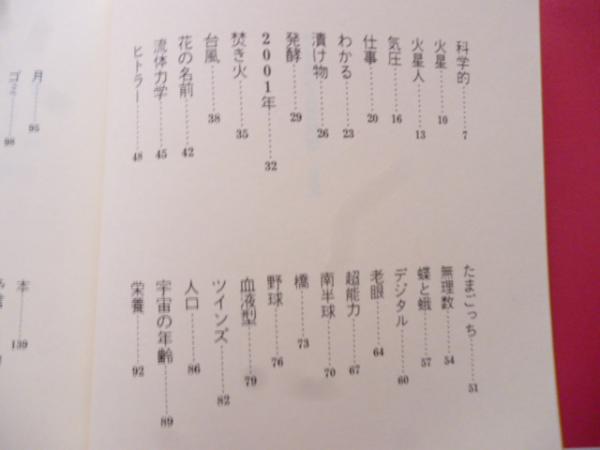 科学的……7
火星……10
火星人……13
気圧……16
仕事……20
わかる……23
漬け物……26
発酵……29
2001年……32
焚き火……35
台風……38
花の名前……42
流体力学……45
ヒトラー……48
たまごっち……51
無理数……54
蝶と蛾……57
デジタル……60
老眼……64
超能力……67
南半球……70
橋……73
野球……76
血液型……79
ツインズ……82
人口……86
宇宙の年齢……89
栄養……92
月……95
ゴミ……98
本……139